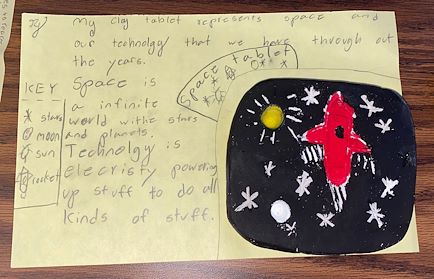 My clay tablet represents space and
our technolgy that we have through out
the years.
Space tablet
KEY
* stars
moon
sun
rocket
Space is
a infinite
world withe stars
and planets.
Technolgy is
elecristy powering
up stuff to do all
kinds of stuff.